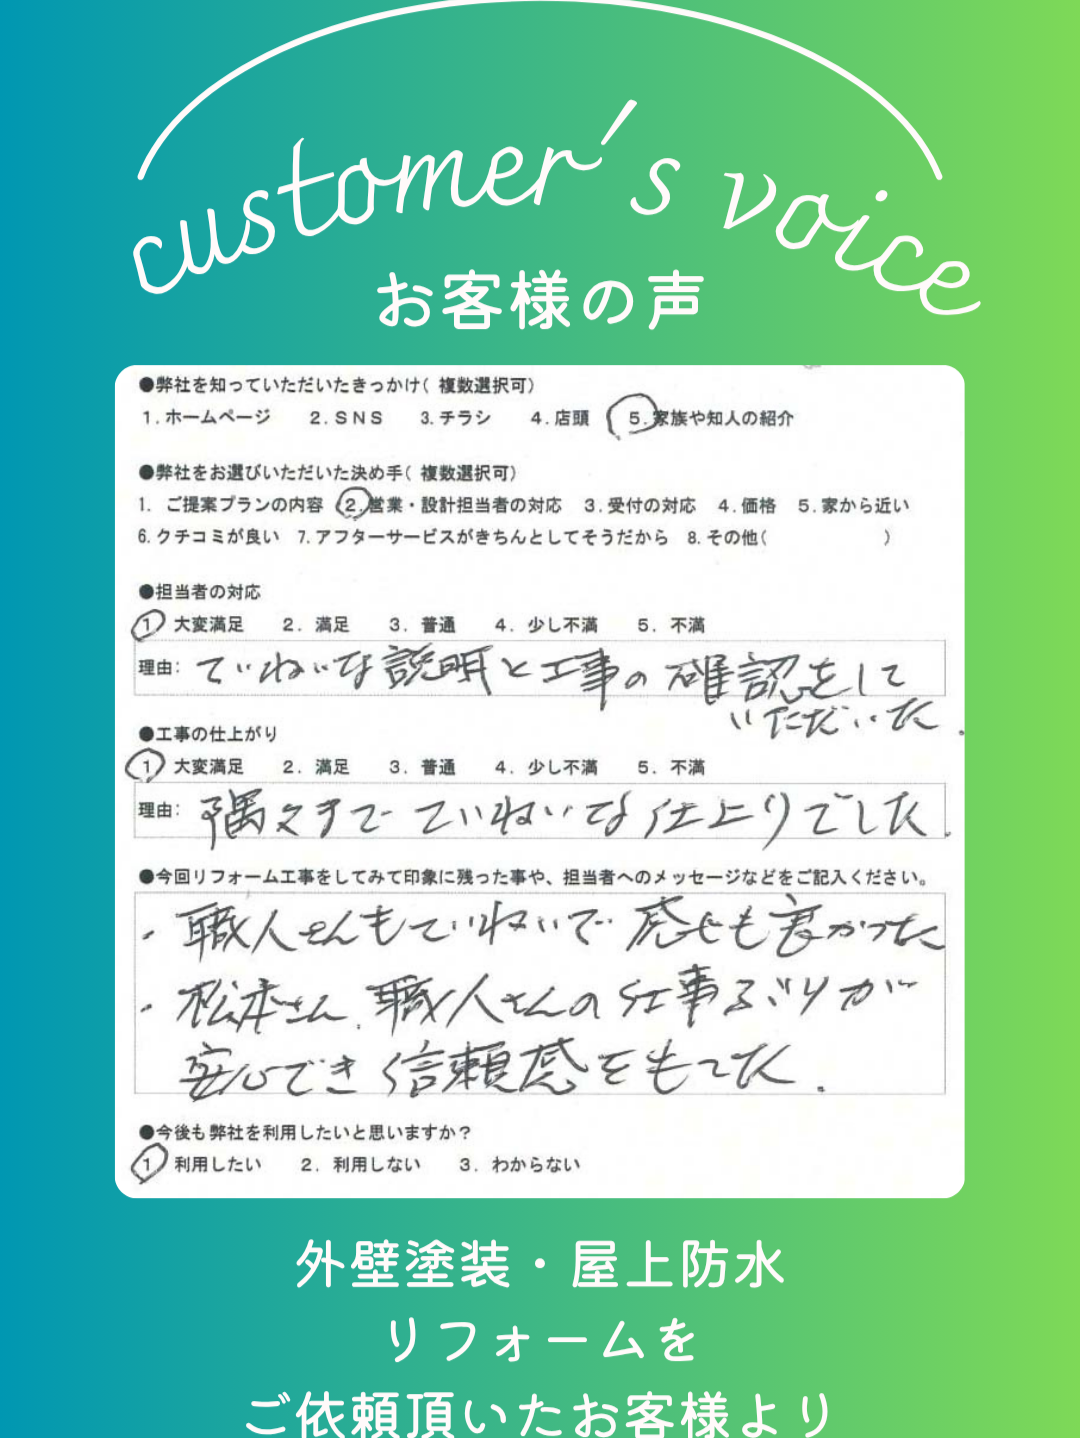 customer's voice
お客様の声
●弊社を知っていただいたきっかけ( 複数選択可)
1.ホームページ 2.SNS 3.チラシ 4.店頭 5.家族や知人の紹介
●弊社をお選びいただいた決め手( 複数選択可)
1. ご提案プランの内容 2.営業・設計担当者の対応 3.受付の対応 4.価格 5.家から近い
6.クチコミが良い 7.アフターサービスがきちんとしてそうだから 8.その他( )
●担当者の対応
1 大変満足 2. 満足 3. 普通 4. 少し不満 5. 不満
理由: ていねいな説明と工事の確認をして
いただいた.
●工事の仕上がり
1 大変満足 2. 満足 3. 普通 4. 少し不満 5. 不満
理由: 隅々まで ていねいな仕上りでした.
●今回リフォーム工事をしてみて印象に残った事や、担当者へのメッセージなどをご記入ください。
・職人さんもていねいで 感じも良かった
・松本さん、職人さんの仕事ぶりが
安心でき信頼感をもてた.
●今後も弊社を利用したいと思いますか?
1 利用したい 2. 利用しない 3. わからない
外壁塗装・屋上防水
リフォームを
ご依頼頂いたお客様より